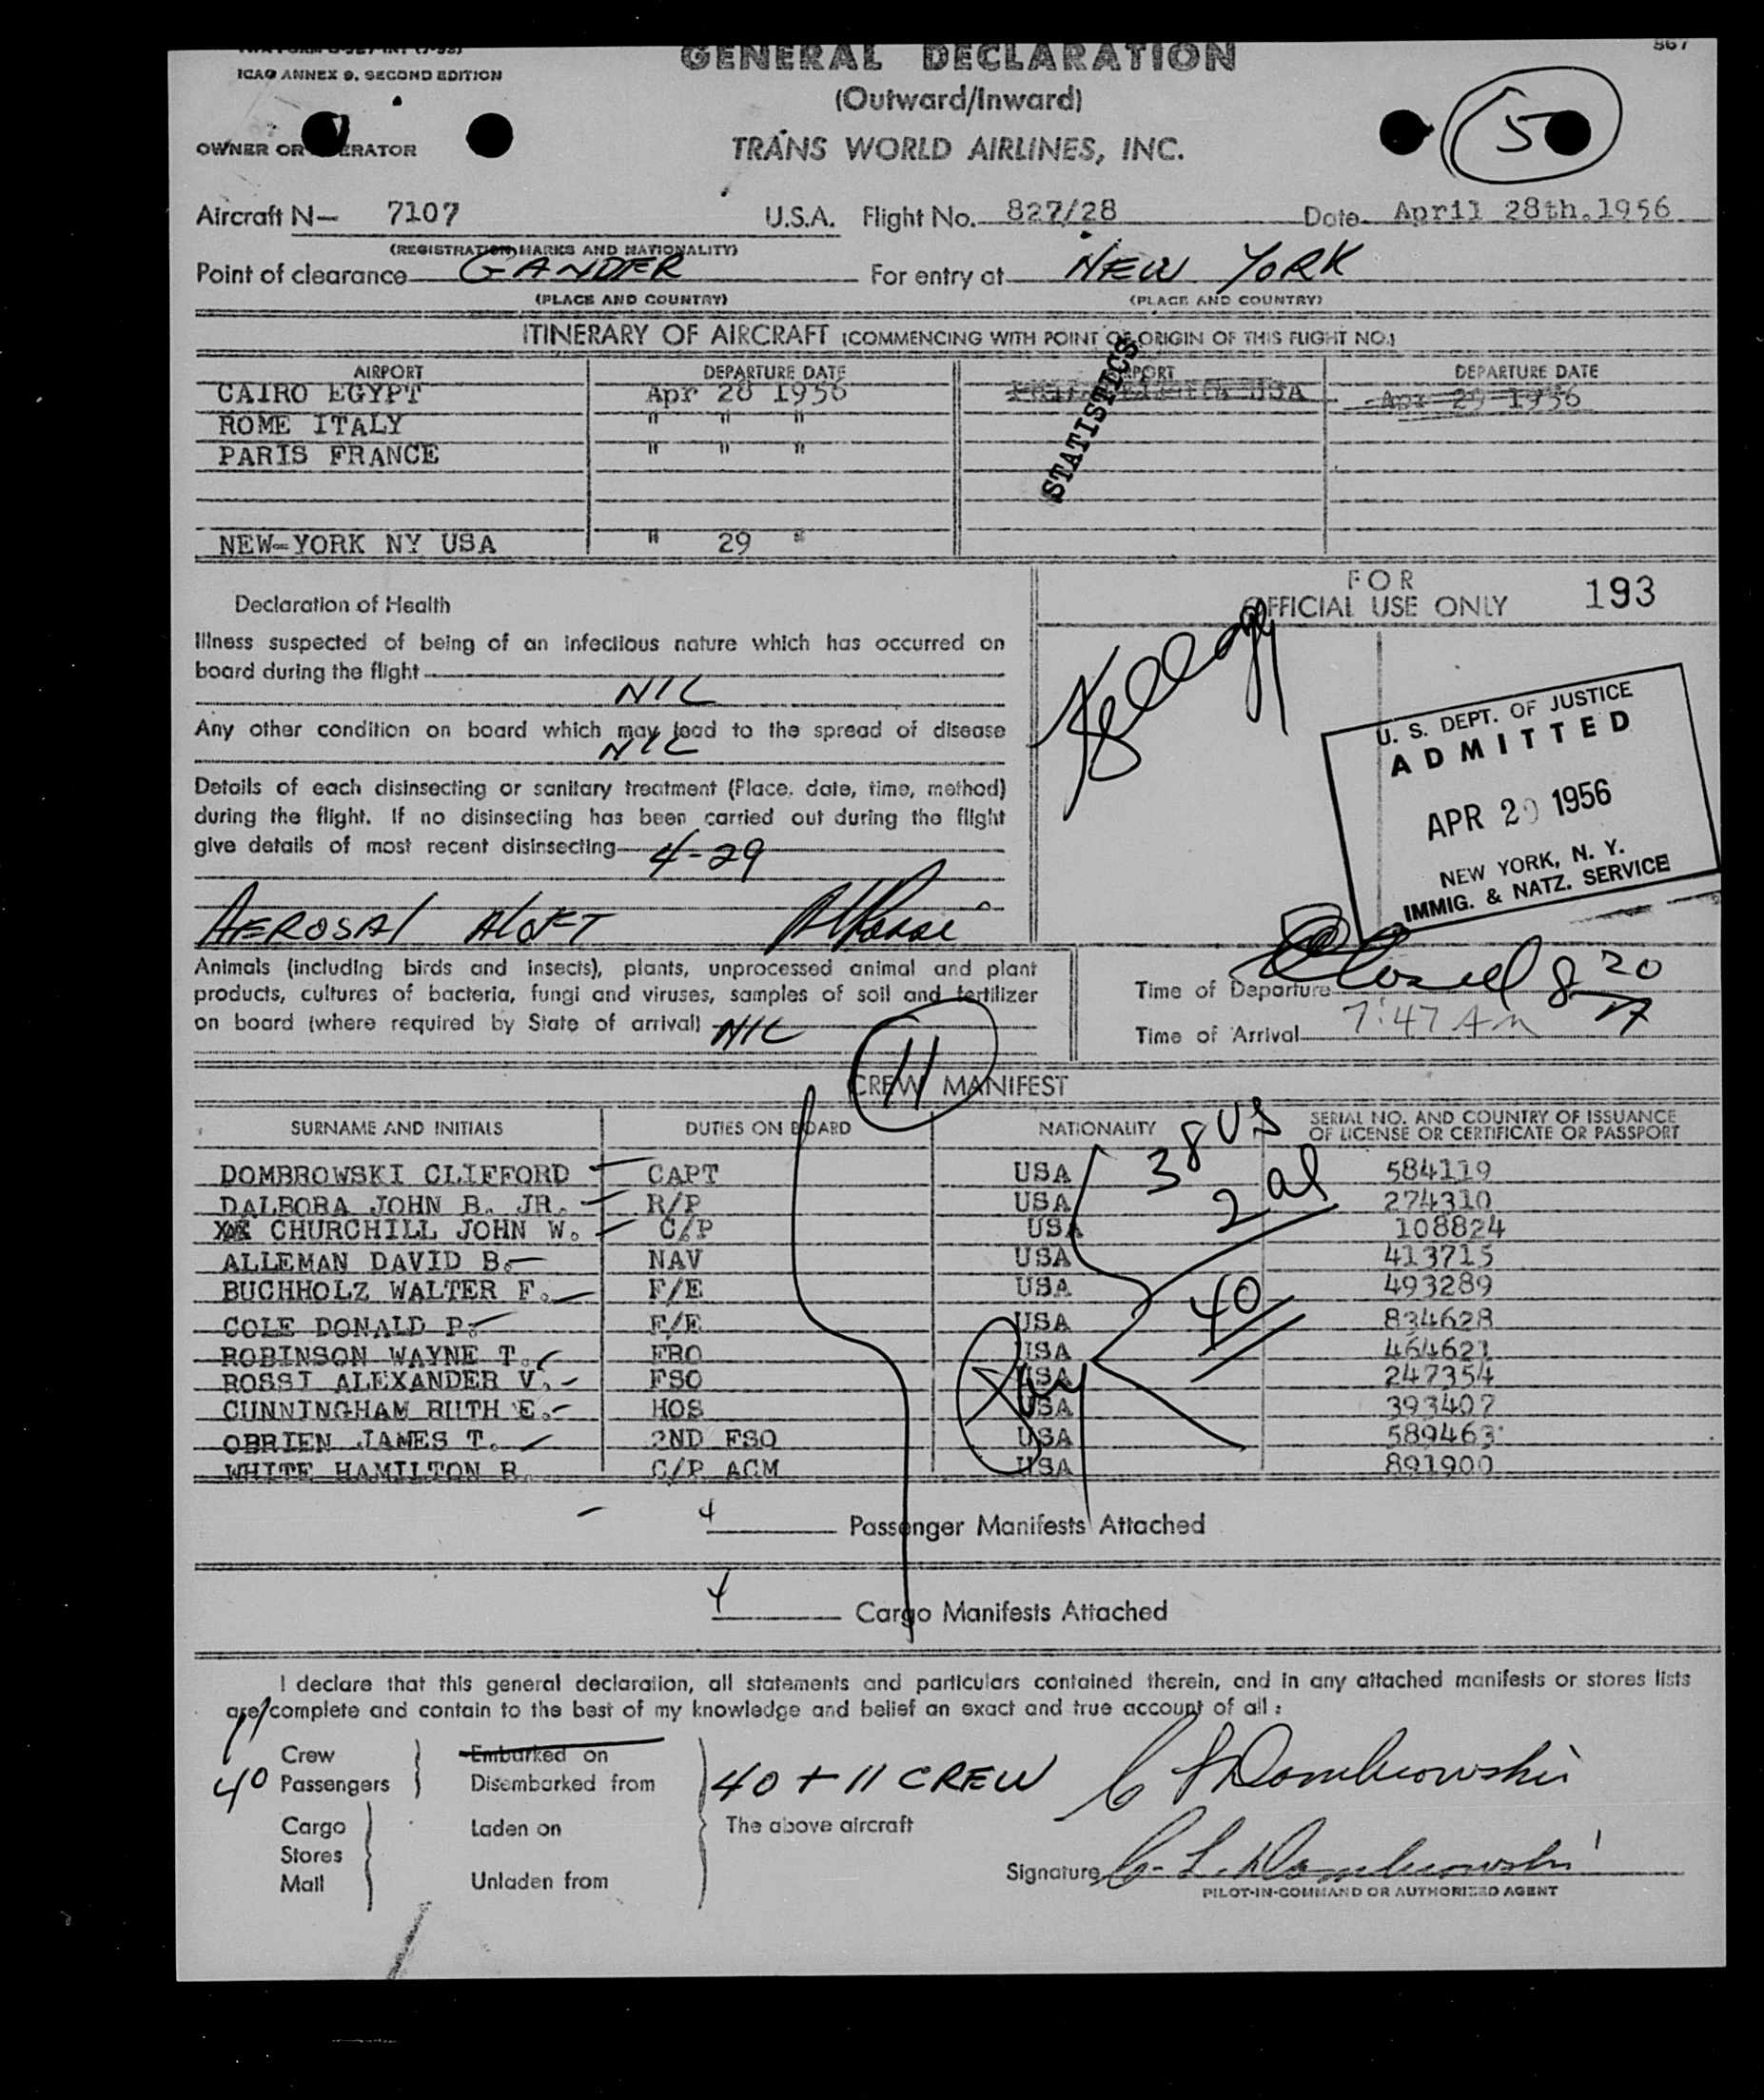 ICAO ANNEX 9. SECOND EDITION
GENERAL DECLARATION
567
(Outward/Inward)
50
OWNER OR OPERATOR
TRANS WORLD AIRLINES, INC.
Aircraft N— 7107 U.S.A. Flight No. 827/28 Date April 28th.1956
(REGISTRATION MARKS AND NATIONALITY)
Point of clearance GANDER For entry at NEW YORK
(PLACE AND COUNTRY) (PLACE AND COUNTRY)
ITINERARY OF AIRCRAFT (COMMENCING WITH POINT OF ORIGIN OF THIS FLIGHT NO.)
AIRPORT DEPARTURE DATE AIRPORT DEPARTURE DATE
CAIRO EGYPT Apr 28 1956 USA Apr 29 1956
ROME ITALY " " "
PARIS FRANCE " " "
STATISTICS
NEW-YORK NY USA " 29 "
FOR
OFFICIAL USE ONLY 193
Declaration of Health
Illness suspected of being of an infectious nature which has occurred on
board during the flight
NIL
Any other condition on board which may lead to the spread of disease
NIL
Details of each disinsecting or sanitary treatment (Place, date, time, method)
during the flight. If no disinsecting has been carried out during the flight
give details of most recent disinsecting 4-29
AEROSAL ALOFT
Kellogg
U. S. DEPT. OF JUSTICE
ADMITTED
APR 29 1956
NEW YORK, N. Y.
IMMIG. & NATZ. SERVICE
Animals (including birds and insects), plants, unprocessed animal and plant
products, cultures of bacteria, fungi and viruses, samples of soil and fertilizer
on board (where required by State of arrival) NIL
Time of Departure Closed 8 20
Time of Arrival 7:47 AM
11
CREW MANIFEST
SURNAME AND INITIALS DUTIES ON BOARD NATIONALITY SERIAL NO. AND COUNTRY OF ISSUANCE
OF LICENSE OR CERTIFICATE OR PASSPORT
38 US
2 al
40
DOMBROWSKI CLIFFORD CAPT USA 584119
DALBORA JOHN B. JR. R/P USA 274310
CHURCHILL JOHN W. C/P USA 108824
ALLEMAN DAVID B. NAV USA 413715
BUCHHOLZ WALTER F. F/E USA 493289
COLE DONALD P. F/E USA 834628
ROBINSON WAYNE T. FRO USA 464621
ROSSI ALEXANDER V. FSO USA 247354
CUNNINGHAM RUTH E. HOS USA 393407
OBRIEN JAMES T. 2ND FSO USA 589463
WHITE HAMILTON R. C/P ACM USA 891900
4 Passenger Manifests Attached
4 Cargo Manifests Attached
I declare that this general declaration, all statements and particulars contained therein, and in any attached manifests or stores lists
are complete and contain to the best of my knowledge and belief an exact and true account of all :
Crew Embarked on
40 Passengers Disembarked from 40 + 11 CREW C L Dombrowski
Cargo Laden on The above aircraft
Stores
Mail Unladen from Signature C. L. Dombrowski
PILOT-IN-COMMAND OR AUTHORIZED AGENT